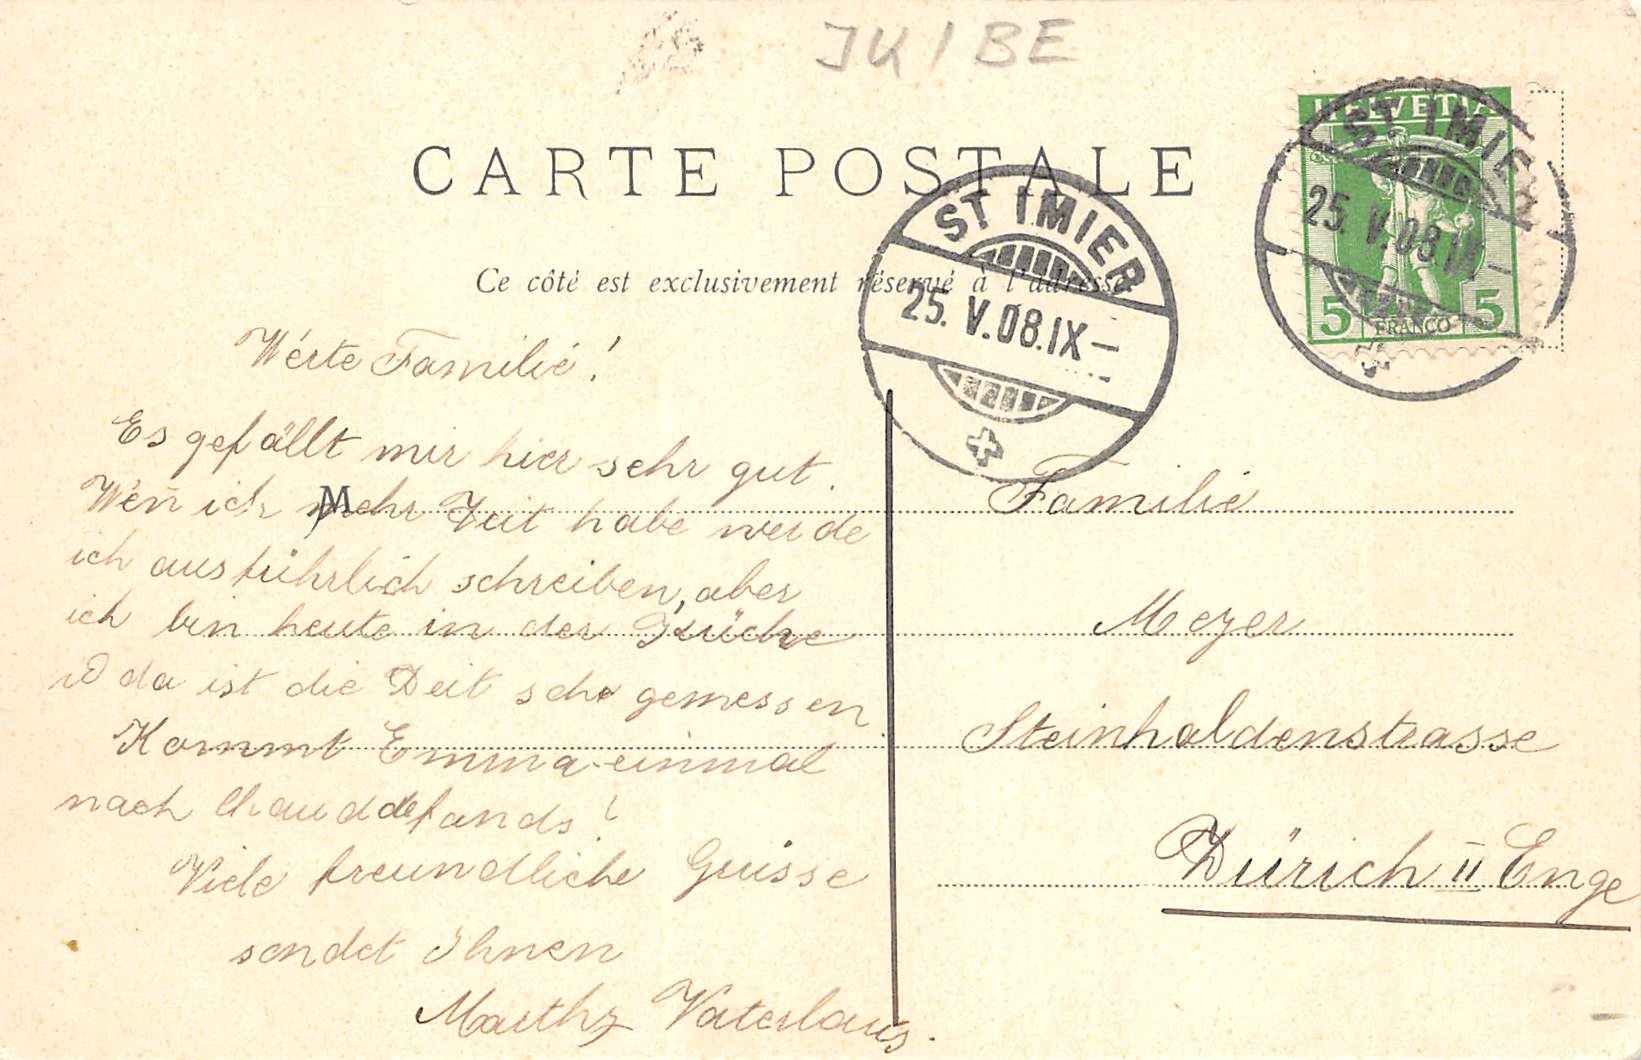 JU / BE
CARTE POSTALE
Ce côté est exclusivement réservé à l'adresse
HELVETIA
5 FRANCO 5
ST IMIER
25. V. 08. IX –
ST IMIER
25. V. 08. IX –
Werte Familie!
Es gefällt mir hier sehr gut.
Weñ ich Mehr Zeit habe werde
ich ausführlich schreiben, aber
ich bin heute in der Küche
u da ist die Zeit sehr gemessen
Kommt Emma einmal
nach Chauddefands!
Viele freundliche Grüsse
sendet Ihnen
Martha Vaterlaus.
Familie
Meyer
Steinhaldenstrasse
Zürich II Enge